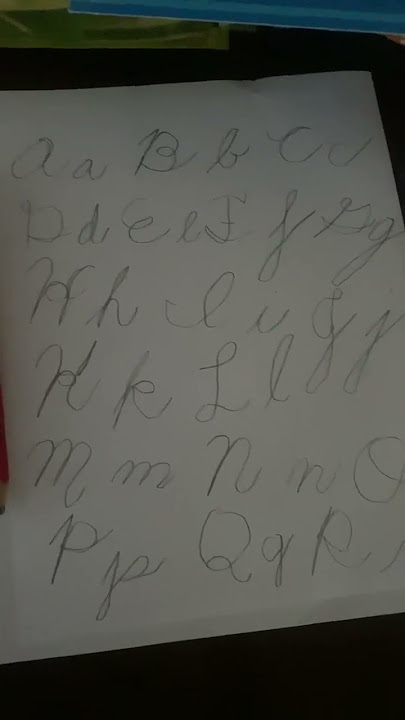 A a B b C c
D d E e F f G g
H h I i J j
K k L l
M m N n O
P p Q q R